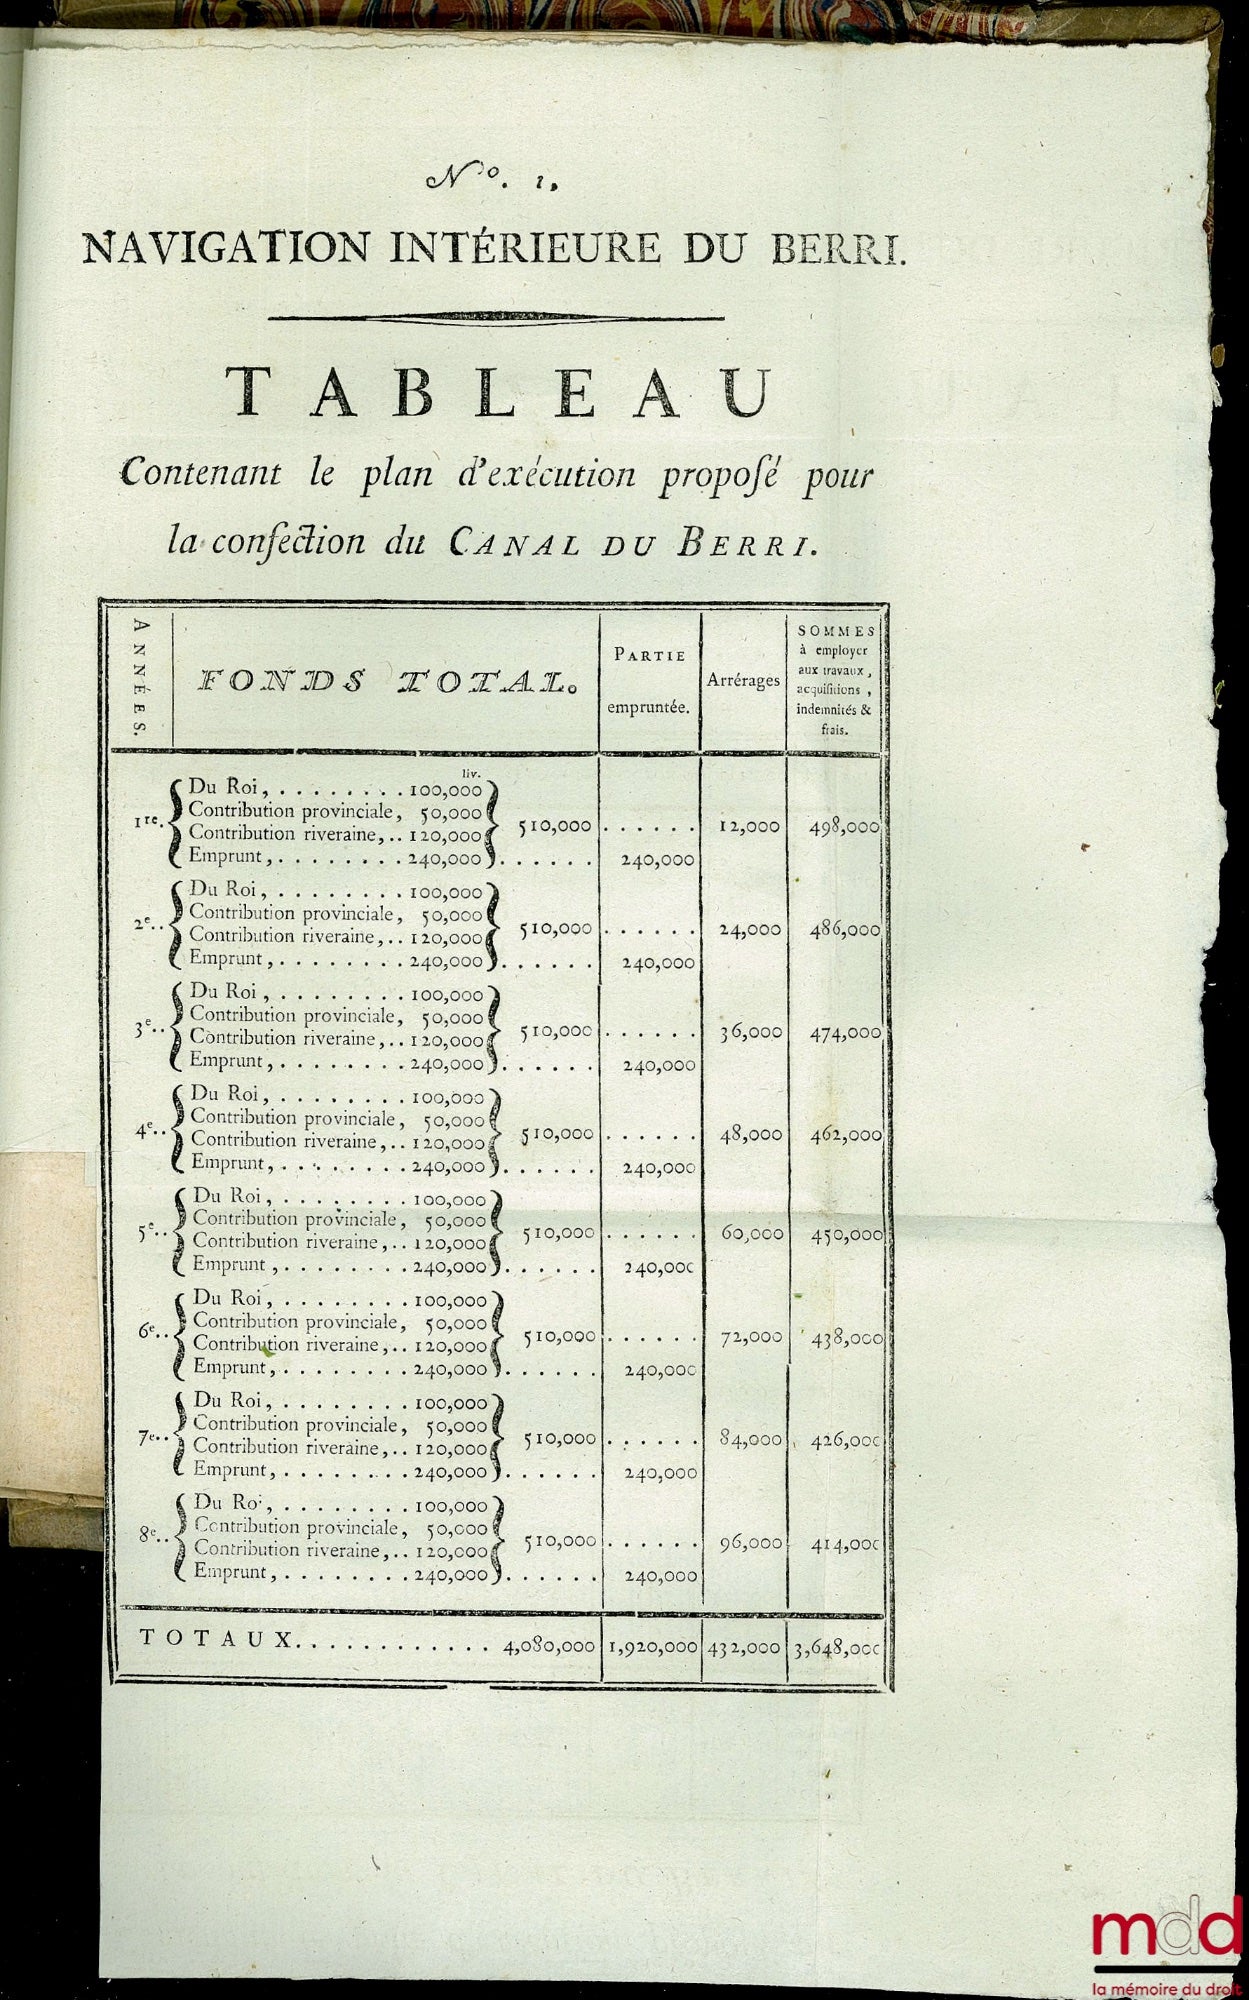 Nº. 1.
NAVIGATION INTÉRIEURE DU BERRI.
TABLEAU
Contenant le plan d'exécution proposé pour
la confection du CANAL DU BERRI.
ANNÉES. FONDS TOTAL. PARTIE empruntée. Arrérages SOMMES à employer aux travaux, acquisitions, indemnités & frais.
liv.
1re. Du Roi, . . . . . . . . 100,000
Contribution provinciale, 50,000
Contribution riveraine, . . 120,000 510,000 . . . . . . 12,000 498,000
Emprunt, . . . . . . . . 240,000 . . . . . . 240,000
2e.. Du Roi, . . . . . . . . 100,000
Contribution provinciale, 50,000
Contribution riveraine, . . 120,000 510,000 . . . . . . 24,000 486,000
Emprunt, . . . . . . . . 240,000 . . . . . . 240,000
3e.. Du Roi, . . . . . . . . 100,000
Contribution provinciale, 50,000
Contribution riveraine, . . 120,000 510,000 . . . . . . 36,000 474,000
Emprunt, . . . . . . . . 240,000 . . . . . . 240,000
4e.. Du Roi, . . . . . . . . 100,000
Contribution provinciale, 50,000
Contribution riveraine, . . 120,000 510,000 . . . . . . 48,000 462,000
Emprunt, . . . . . . . . 240,000 . . . . . . 240,000
5e.. Du Roi, . . . . . . . . 100,000
Contribution provinciale, 50,000
Contribution riveraine, . . 120,000 510,000 . . . . . . 60,000 450,000
Emprunt, . . . . . . . . 240,000 . . . . . . 240,000
6e.. Du Roi, . . . . . . . . 100,000
Contribution provinciale, 50,000
Contribution riveraine, . . 120,000 510,000 . . . . . . 72,000 438,000
Emprunt, . . . . . . . . 240,000 . . . . . . 240,000
7e.. Du Roi, . . . . . . . . 100,000
Contribution provinciale, 50,000
Contribution riveraine, . . 120,000 510,000 . . . . . . 84,000 426,000
Emprunt, . . . . . . . . 240,000 . . . . . . 240,000
8e.. Du Roi, . . . . . . . . 100,000
Contribution provinciale, 50,000
Contribution riveraine, . . 120,000 510,000 . . . . . . 96,000 414,000
Emprunt, . . . . . . . . 240,000 . . . . . . 240,000
TOTAUX. . . . . . . . . . . . 4,080,000 1,920,000 432,000 3,648,000
mdd
la mémoire du droit